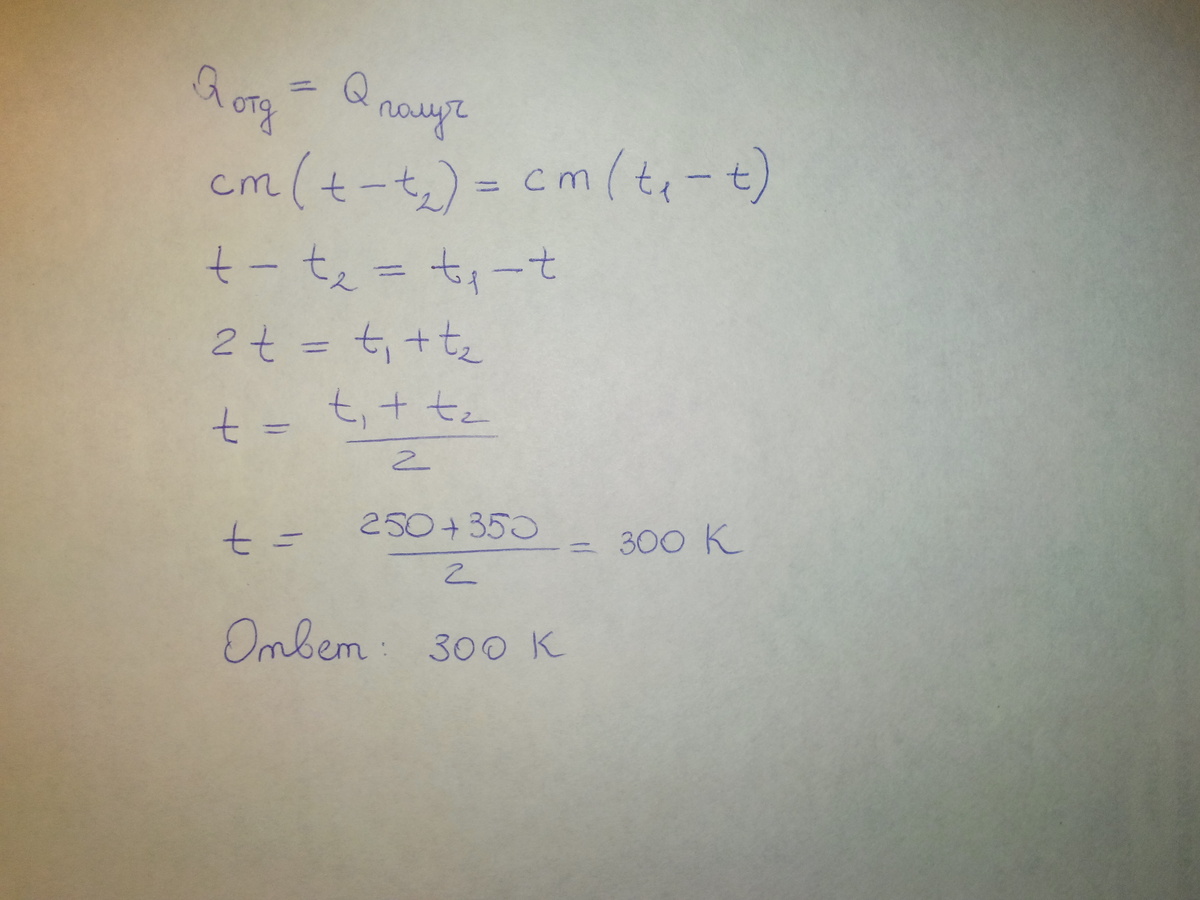 Qотд = Qполуч
cm(t - t₂) = cm(t₁ - t)
t - t₂ = t₁ - t
2t = t₁ + t₂
t = (t₁ + t₂)/2
t = (250+350)/2 = 300 K
Ответ: 300 K